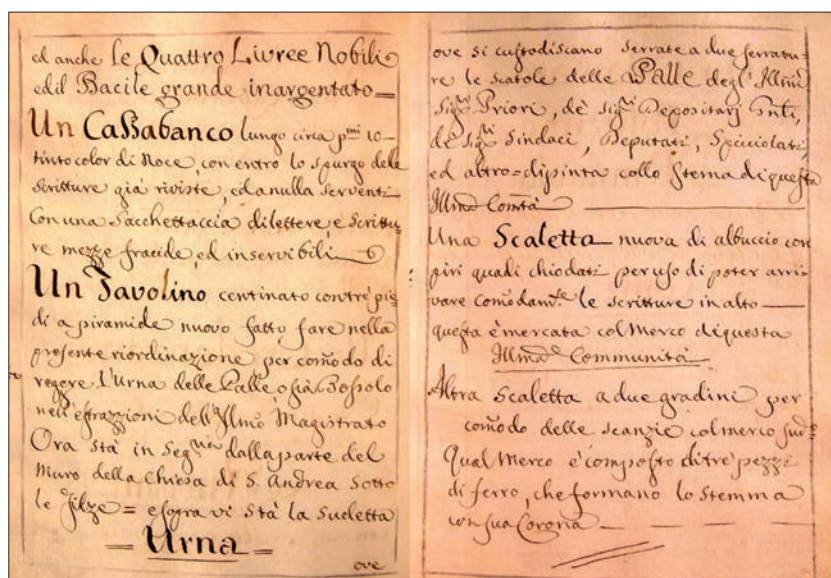 ed anche le Quattro Livree Nobili
ed il Bacile grande inargentato =
Un Cassabanco lungo circa p.mi 10 -
tinto color di Noce, con entro lo spurgo delle
scritture già riviste, ed a nulla serventi
con una Sacchettaccia di lettere, e scrittu-
re mezze fracide, ed inservibili
Un Tavolino centinato con trè pie-
di a piramide nuovo fatto fare nella
presente riordinazione per com̃odo di
regere l'Urna delle Palle o sia Bossolo
nell'estrazzioni dell'Illm̃o Magistrato
Ora stà in Seg.ria dalla parte del
Muro della Chiesa di S. Andrea Sotto
le filze = e sopra vi stà la sudetta
= Urna =
ove
ove si custodiscano serrate a due serratu-
re le scatole delle Palle degl'Illm̃i
Sig.ri Priori, de Sig.ri Depositarj
de Sig.ri Sindaci, Deputati, Spicciolati,
ed altro = dipinta collo stema di questa
Illm̃a Com̃tà
Una Scaletta nuova di albuccio con
piri quadi chiodati per uso di poter arri-
vare com̃odam.te le scritture in alto
questa è mercata col Merco di questa
Illm̃a Communità
Altra Scaletta a due gradini per
com̃odo delle scanzie col merco sud.o
Qual Merco è composto di trè pezzi
di ferro, che formano lo Stemma
con sua Corona